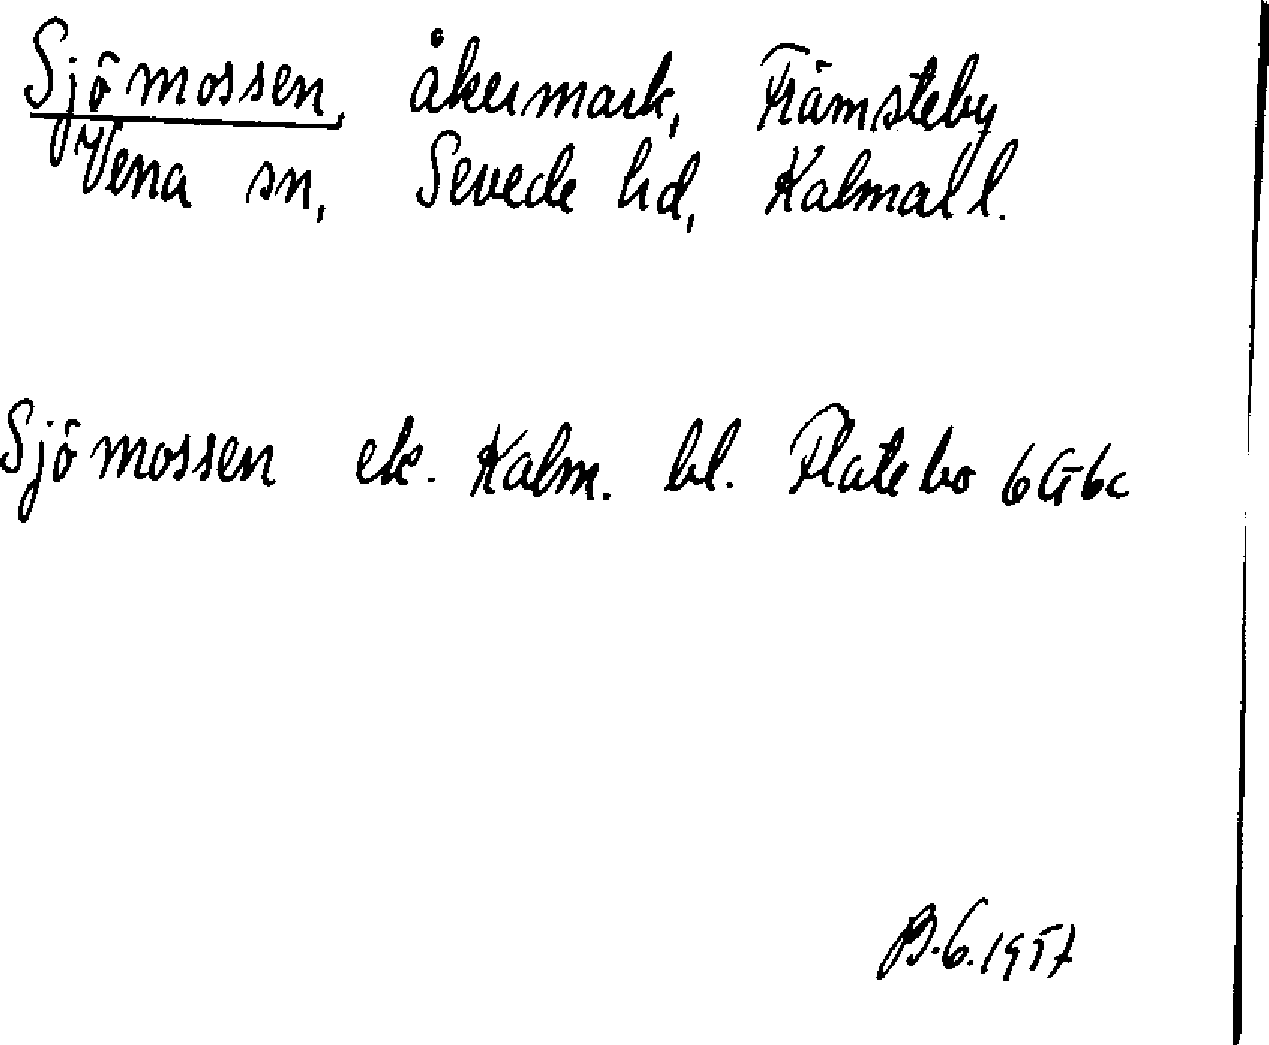 Sjömossen, åkermark, Främsteby
Vena sn, Sevede hd, Kalmar l.
Sjömossen ek. Kalm. bl. Flatebo 6G6c
B.G.1957